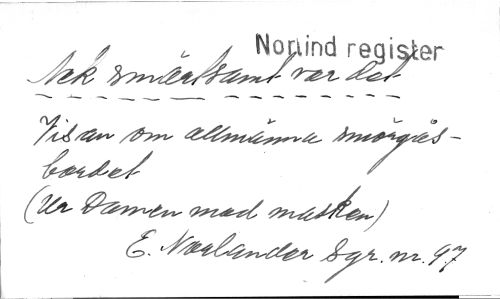 Norlind register
Ack smärtsamt var det
Visan om allmänna smörgås-
bordet
(Ur Damen med masken)
E. Norlander Sgr. nr. 97